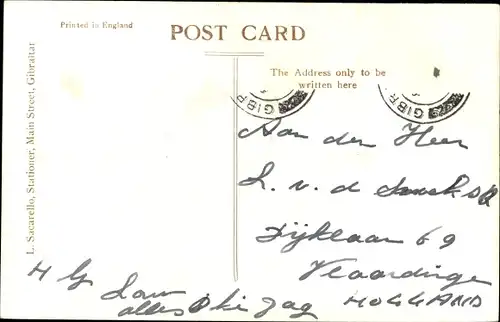 Printed in England
POST CARD
The Address only to be
written here
L. Sacarello, Stationer, Main Street, Gibraltar
GIBR
GIBR
Aan den Heer
L. v. d.
Dijklaan 69
Vlaardingen
HOLLAND
H G
alles